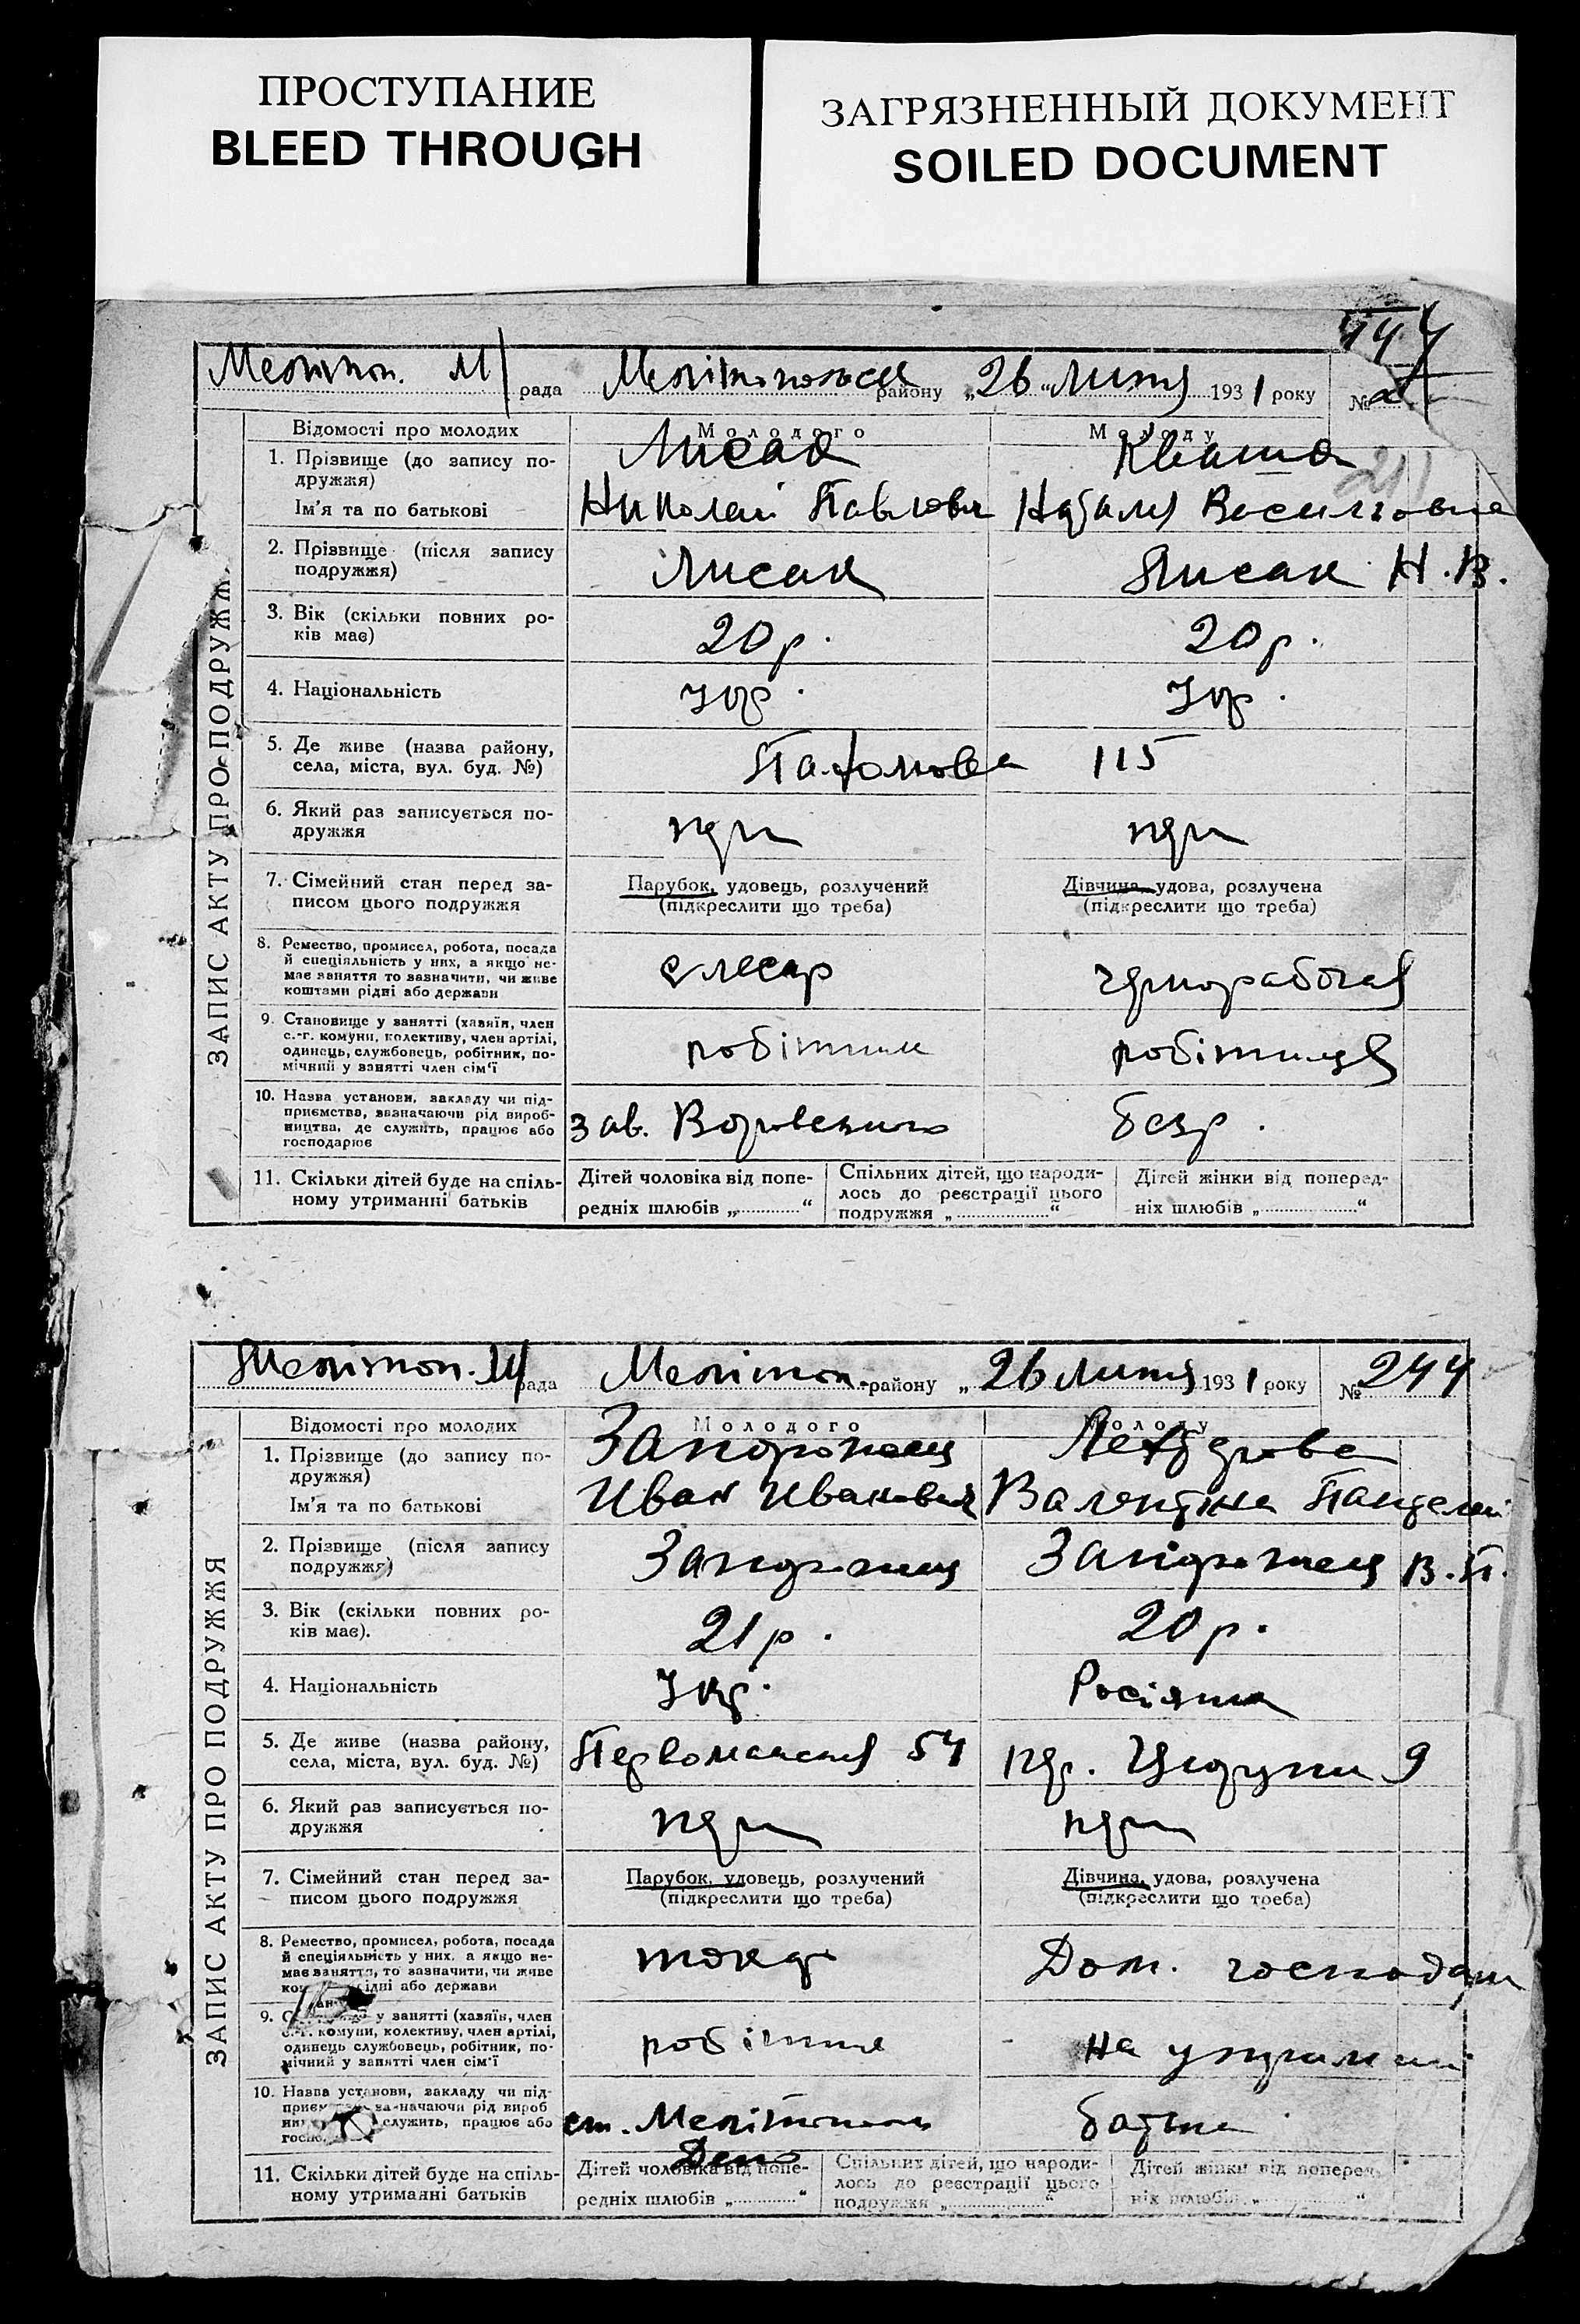 ПРОСТУПАНИЕ
BLEED THROUGH
ЗАГРЯЗНЕННЫЙ ДОКУМЕНТ
SOILED DOCUMENT
Мелітоп. М рада Мелітопольск району „26“ Лютя 1931 року №
ЗАПИС АКТУ ПРО ПОДРУЖЖ
Відомості про молодих Молодого Молоду
1. Прізвище (до запису по-
дружжя) Лисак Кваша
Ім'я та по батькові Николай Павлович Наталя Василювна
2. Прізвище (після запису
подружжя) Лисак Лисак Н.В.
3. Вік (скільки повних ро-
ків має) 20 р. 20 р.
4. Національність Укр. Укр.
5. Де живе (назва району,
села, міста, вул. буд. №) 115
6. Який раз записується по-
дружжя
7. Сімейний стан перед за-
писом цього подружжя
Парубок, удовець, розлучений
(підкреслити що треба)
Дівчина, удова, розлучена
(підкреслити що треба)
8. Ремество, промисел, робота, посада
й спеціяльність у них, а якщо не-
має заняття то зазначити, чи живе
коштами рідні або держави
слесар чернорабочая
9. Становище у занятті (хазяїн, член
с.-г. комуни, колективу, член артілі,
одинець, службовець, робітник, по-
мічний у занятті член сім'ї
робітник робітниця
10. Назва установи, закладу чи під-
приємства, зазначаючи рід вироб-
ництва, де служить, працює або
господарює
зав. Воровського безр.
11. Скільки дітей буде на спіль-
ному утриманні батьків
Дітей чоловіка від попе-
редніх шлюбів „ “
Спільних дітей, що народи-
лось до реєстрації цього
подружжя „ “
Дітей жінки від поперед-
ніх шлюбів „ “
Мелітоп. М рада Мелітоп. району „26 Лютя 1931 року № 244
ЗАПИС АКТУ ПРО ПОДРУЖЖЯ
Відомості про молодих Молодого Молоду
1. Прізвище (до запису по-
дружжя) Запорожец
Ім'я та по батькові Иван Иванович Валентина Пантелей
2. Прізвище (після запису
подружжя) Запорожец Запорожец В.П.
3. Вік (скільки повних ро-
ків має). 21 р. 20 р.
4. Національність Укр. Росіянка
5. Де живе (назва району,
села, міста, вул. буд. №) Первомайська 54 9
6. Який раз записується по-
дружжя
7. Сімейний стан перед за-
писом цього подружжя
Парубок, удовець, розлучений
(підкреслити що треба)
Дівчина, удова, розлучена
(підкреслити що треба)
8. Ремество, промисел, робота, посада
й спеціяльність у них, а якщо не-
має заняття, то зазначити, чи живе
рідні або держави
токар Дом. господар
9. у занятті (хазяїн, член
с.-г. комуни, колективу, член артілі,
одинець службовець, робітник, по-
мічний у занятті член сім'ї
робітник на утриманні
10. Назва установи, закладу чи під-
зазначаючи рід вироб
служить, працює або
ст. Мелітополь батька
Депо
11. Скільки дітей буде на спіль-
ному утриманні батьків
Дітей чоловіка від попе-
редніх шлюбів „ “
Спільних дітей, що народи-
лось до реєстрації цього
подружжя „ “
Дітей жінки від поперед-
ніх шлюбів „ “